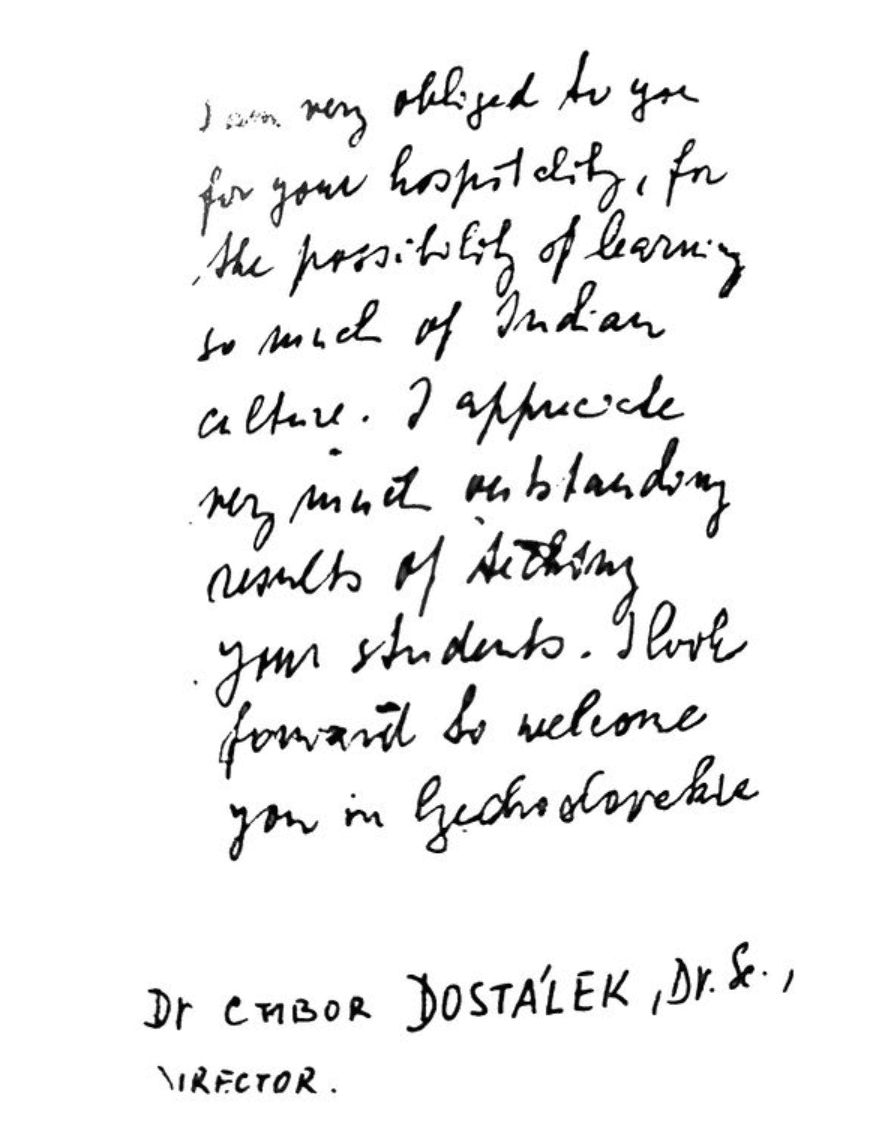 I am very obliged to you
for your hospitality, for
the possibility of learning
so much of Indian
culture. I appreciate
very much outstanding
results of teching
your students. I look
forward to welcome
you in Czechoslovakia
Dr CTIBOR DOSTÁLEK, Dr. Sc.,
DIRECTOR.